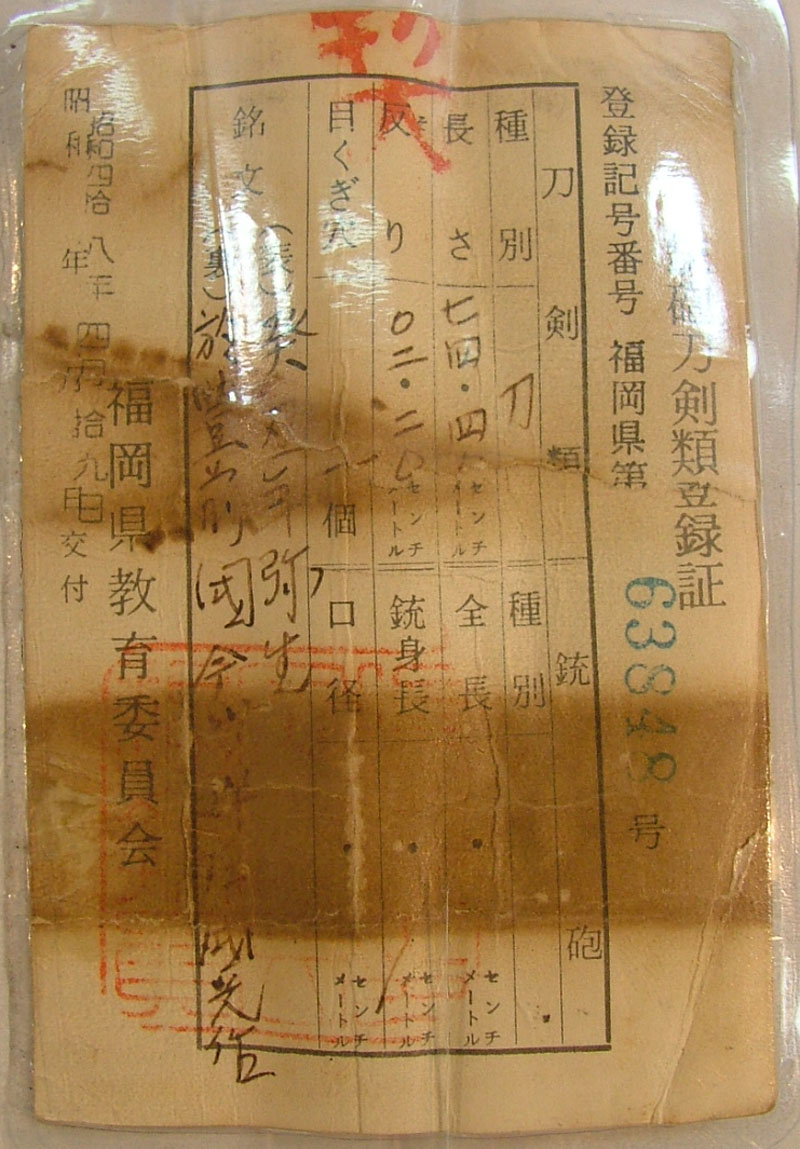 刀剣類登録証
登録記号番号 福岡県第 63848 号
刀剣類 銃砲
種別 刀 種別
長さ 七四・四 センチメートル 全長 ・ センチメートル
反り 〇二・二〇 センチメートル 銃身長 ・ センチメートル
目くぎ穴 一個 口径 ・ センチメートル
銘文 (表) 癸 年弥生
(裏) 於 國 光作
福岡県教育委員会
昭和四拾八年四月拾九日交付